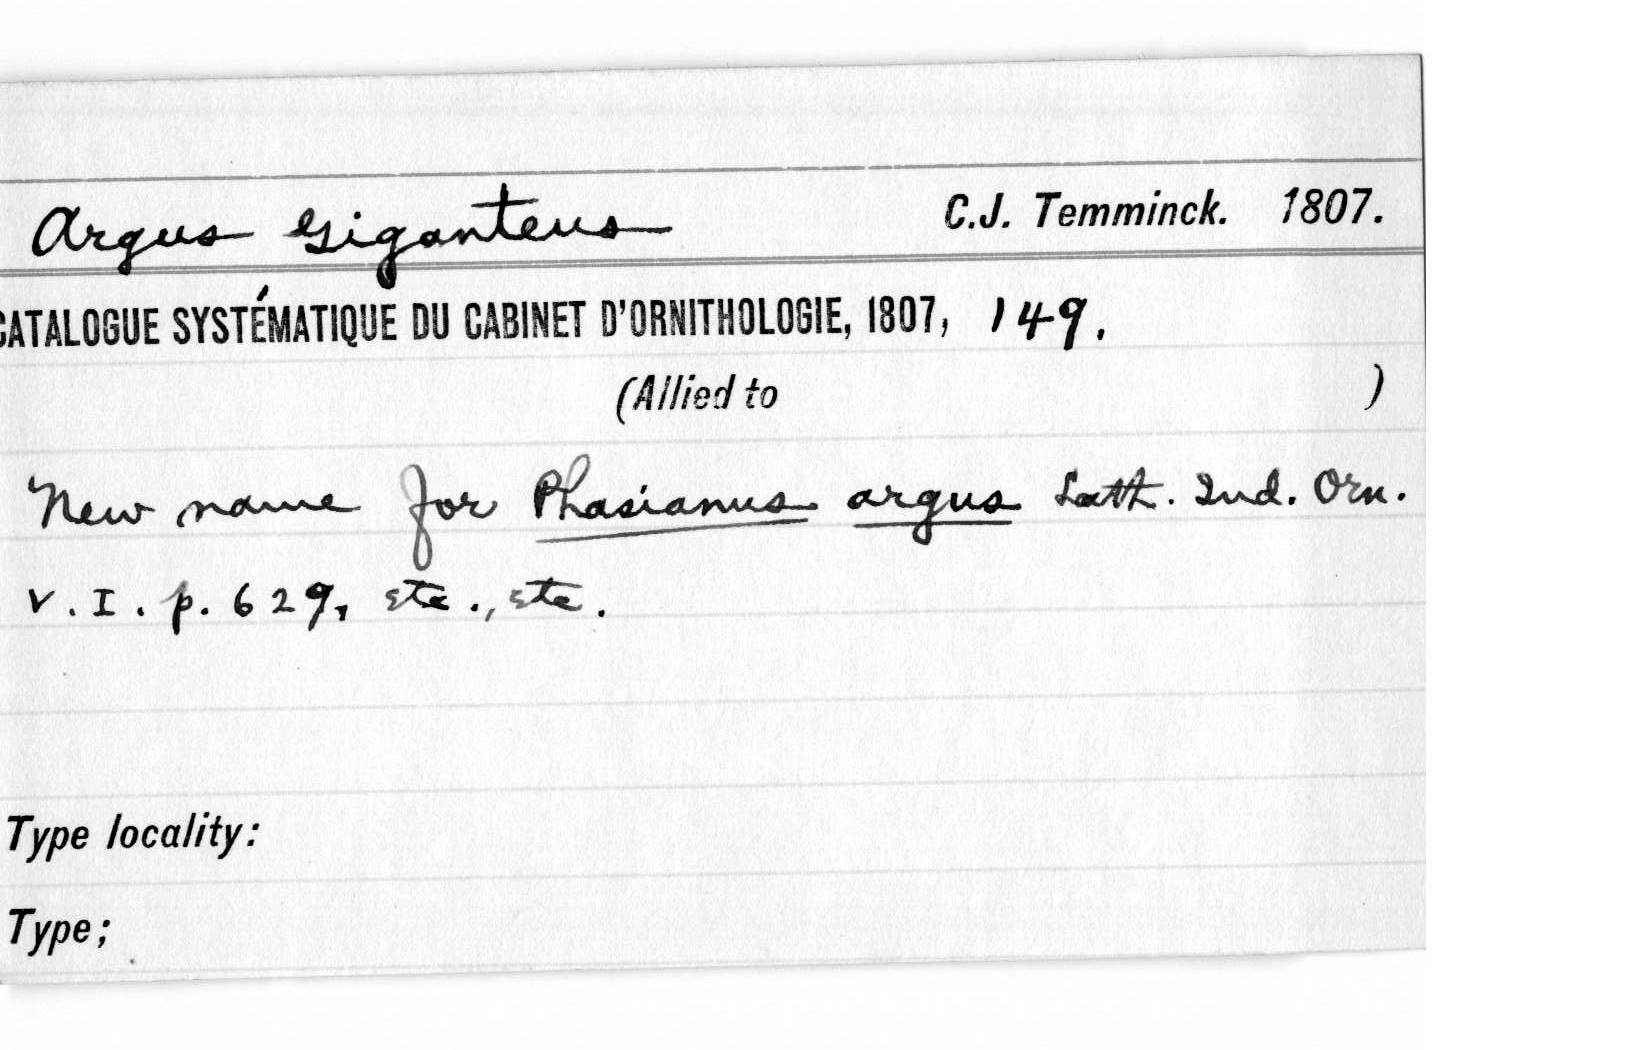 Argus Giganteus C.J. Temminck. 1807.
CATALOGUE SYSTÉMATIQUE DU CABINET D'ORNITHOLOGIE, 1807, 149.
(Allied to )
New name for Phasianus argus Lath. Ind. Orn.
v. I. p. 629, etc., etc.
Type locality:
Type;